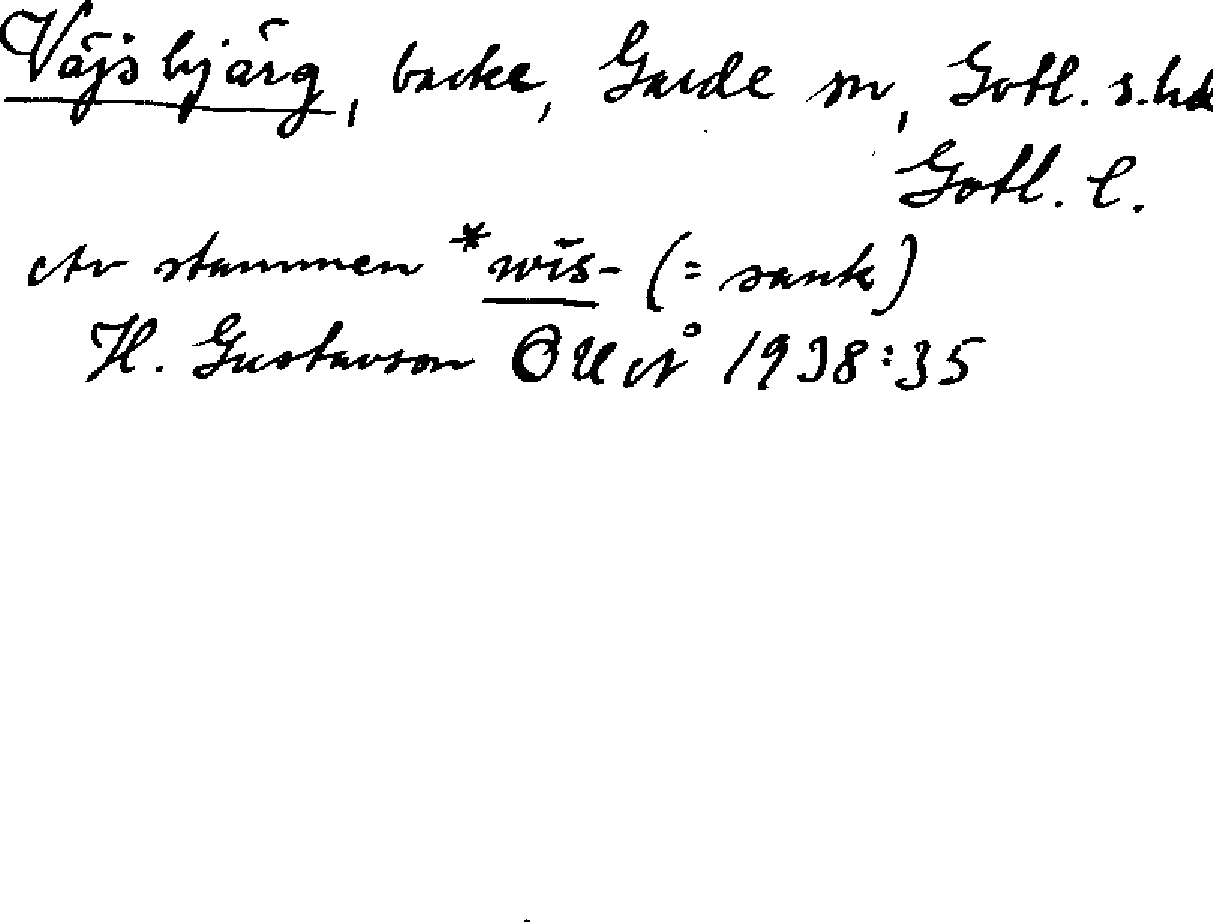 Väjsbjärg, backe, Garde sn, Gotl. s. hd
Gotl. l.
Av stammen *wīs- (= sank)
H. Gustavson OUÅ 1938:35